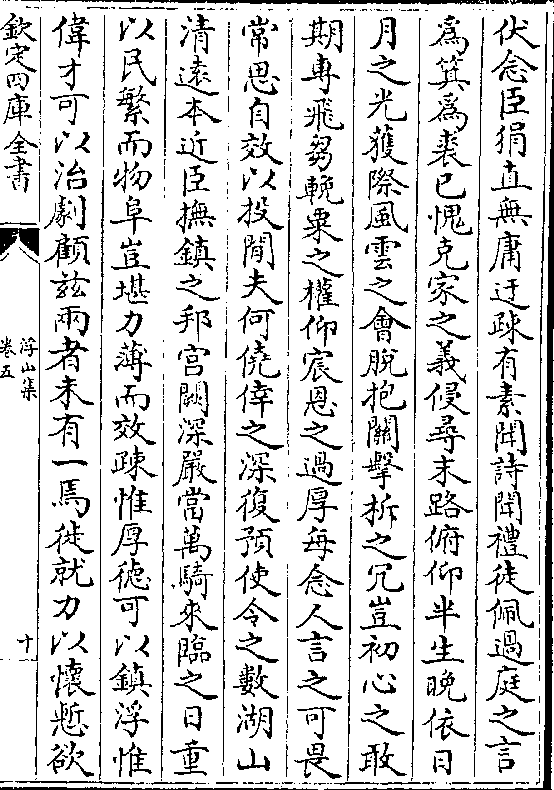 伏念臣狷直無庸迂疎有素聞詩聞禮徒佩過庭之言
爲箕爲裘已愧克家之義侵尋末路俯仰半生晚依日
月之光獲際風雲之會脫抱關擊柝之冗豈初心之敢
期專飛芻輓粟之權仰宸恩之過厚每念人言之可畏
常思自效以投閒夫何僥倖之深復預使令之數湖山
清遠本近臣撫鎮之邦宫闕深嚴當萬騎來臨之日重
以民繁而物阜豈堪力薄而效疎惟厚徳可以鎮浮惟
偉才可以治劇顧兹兩者未有一焉徙就力以懷慙欲
欽定四庫全書
浮山集
卷五
十